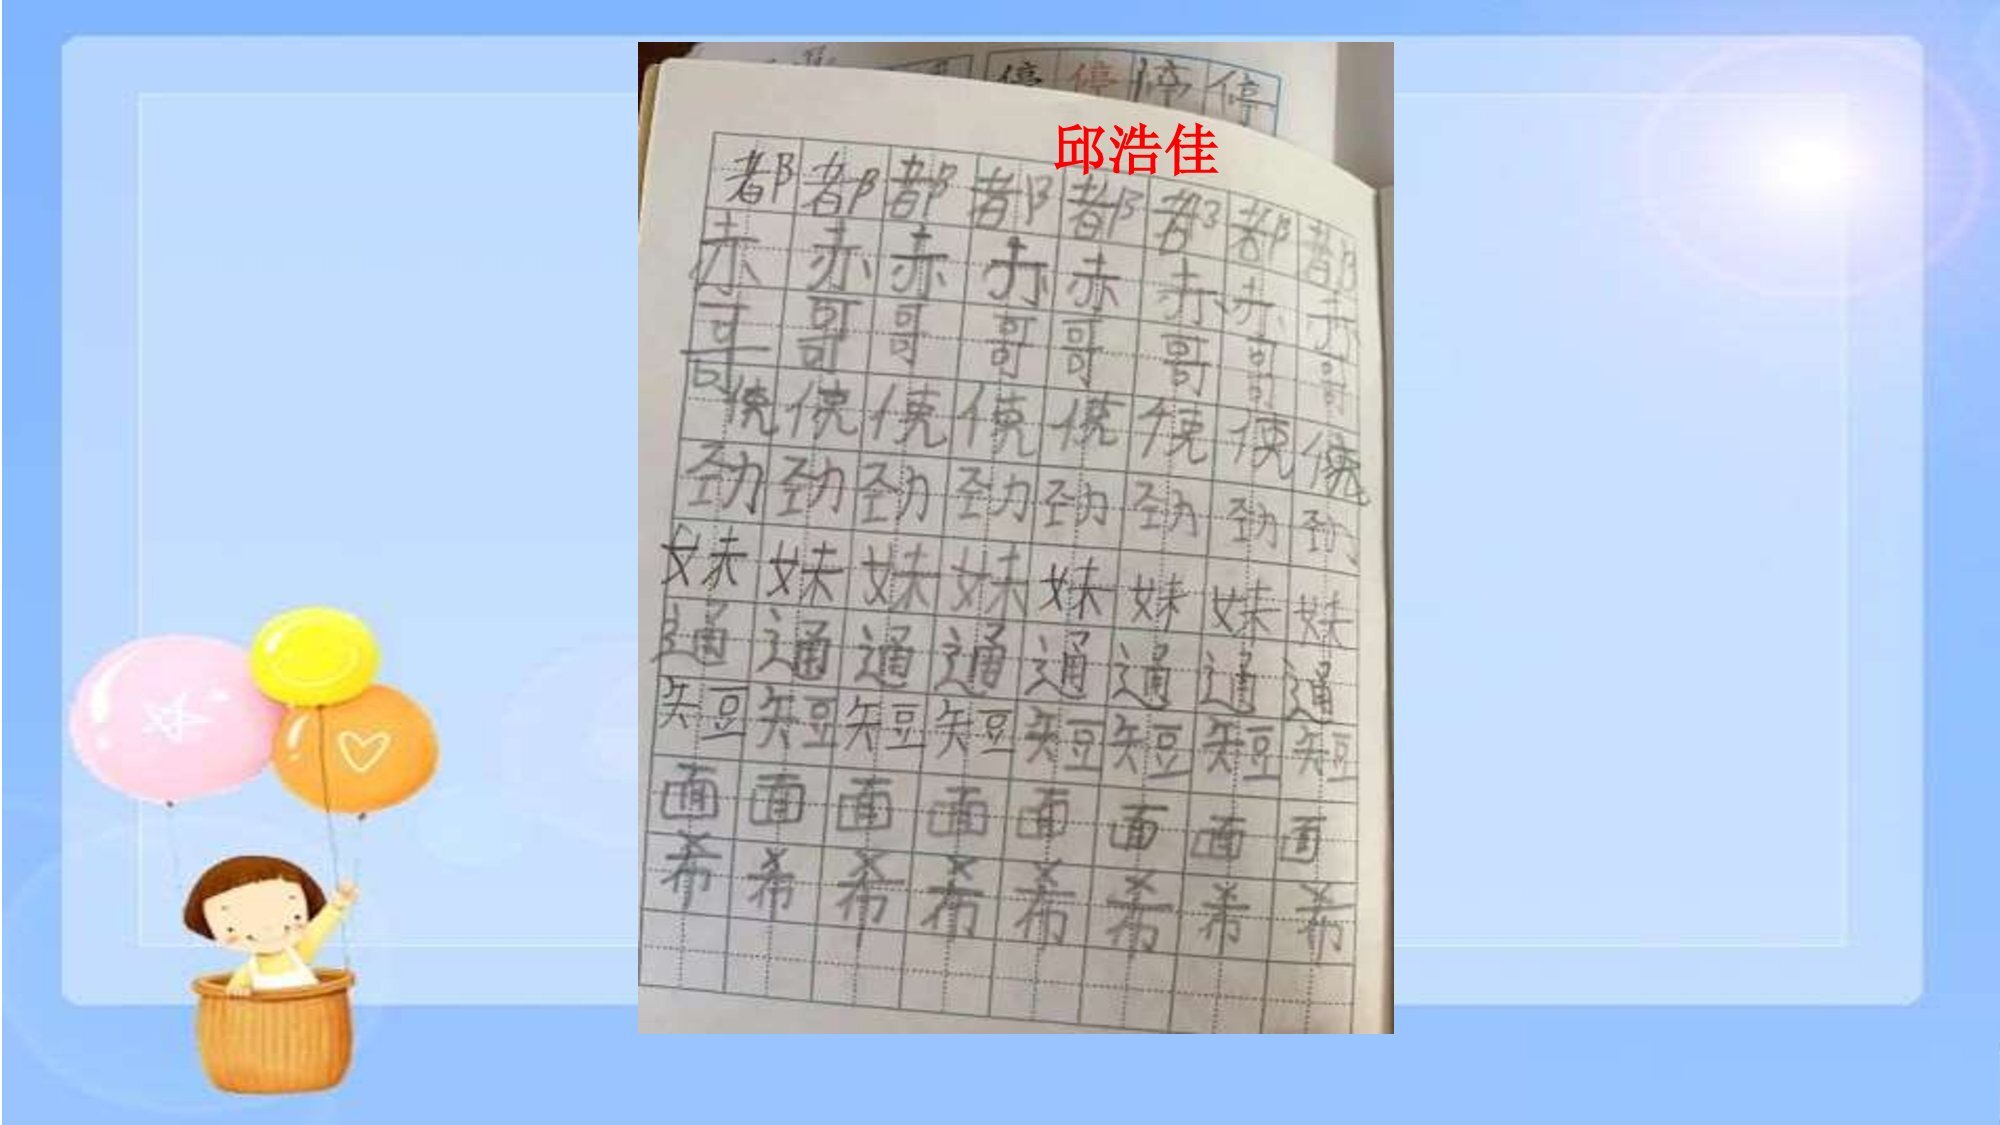 停 停 停 停
邱浩佳
都 都 都 都 都 都 都 都
赤 赤 赤 赤 赤 赤 赤 赤
哥 哥 哥 哥 哥 哥 哥 哥
劲 劲 劲 劲 劲 劲 劲 劲
妹 妹 妹 妹 妹 妹 妹 妹
通 通 通 通 通 通 通 通
短 短 短 短 短 短 短 短
面 面 面 面 面 面 面 面
希 希 希 希 希 希 希 希